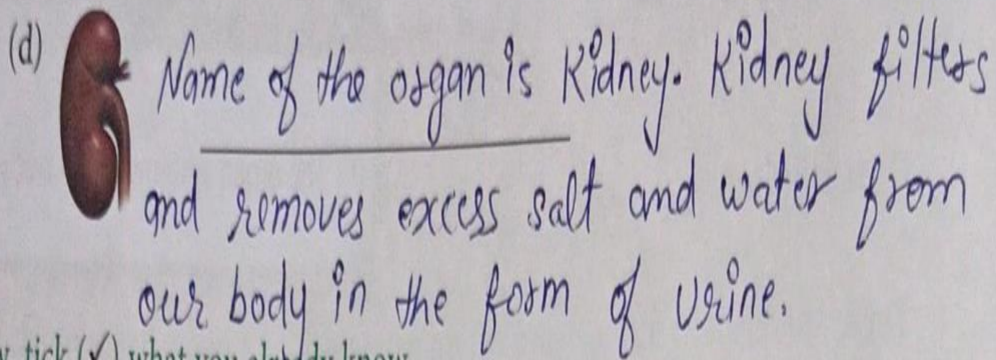 (d) Name of the organ is Kidney. Kidney filters
and removes excess salt and water from
our body in the form of urine.
tick (✓) what you already know